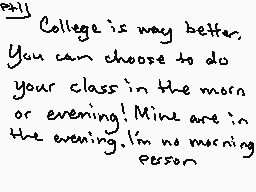 College is way better.
You can choose to do
your class in the morn
or evening! Mine are in
the evening. I'm no morning
person